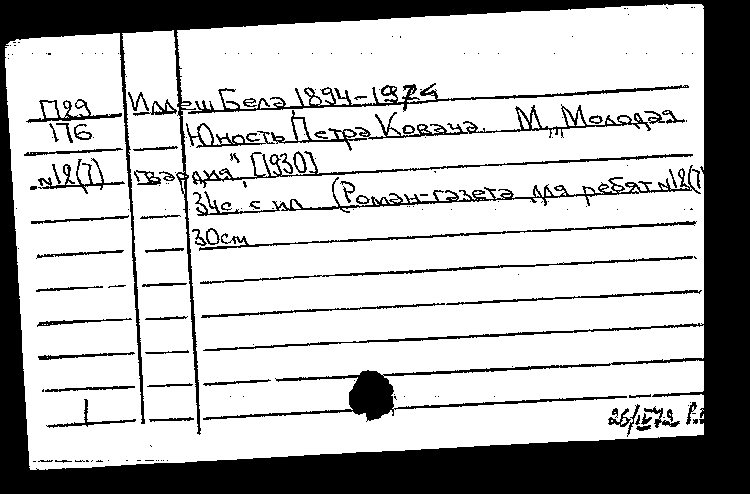 П29 Иллеш Бела, 1894-1974
176 Юность Петра Кована. М., „Молодая
№12(7) гвардия", [1930]
34с. с ил. (Роман-газета для ребят №12(7)
30см
1
26/IV72